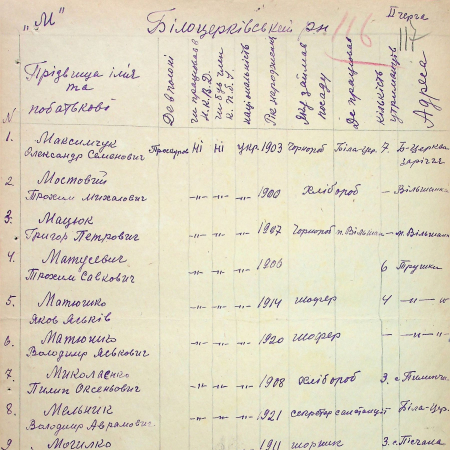 „М" Білоцерківський рн
ІІ черга
116
117
N
Прізвища ім'я
та
побатькові
Де в полоні
чи працював в
Н.К.В.Д.
чи був член
К.П.б.У.
національність
Рік народження
Яку займав
посаду
Де працював
кількість
утриманців
Адреса
1. Максимчук
Олександр Семенович Проскурів Ні Ні укр. 1903 Чорнороб Біла-Цер. 7. Б-Церква
заріччя
2 Мостовий
Трохим Михалович -„- -„- -„- 1900 Хлібороб - Вільшанка
3. Мацюк
Григор Петрович -„- -„- -„- 1907 Чорнороб
4. Матусевич
Трохим Савкович -„- -„- -„- 1906 6 Трушки
5. Матюшко
Яков Яськів -„- -„- -„- 1914 шофер 4 -„-
6. Матюшко
Володимир Яськович -„- -„- -„- 1920 шофер - -„-
7 Миколаєнко
Пилип Оксеньович -„- -„- -„- 1908 Хлібороб 3.
8. Мельник
Володимир Аврамович. -„- -„- -„- 1921 секретар Біла-Цер.
9 Могилко 1911 шорник 3. с. Пісчана